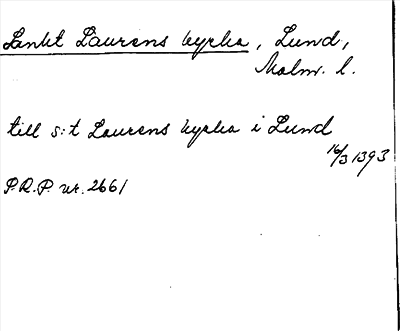 Sankt Laurens kyrka, Lund,
Malm. l.
till s:t Laurens kyrka i Lund
16/3 1393
P.R.P. nr. 2661